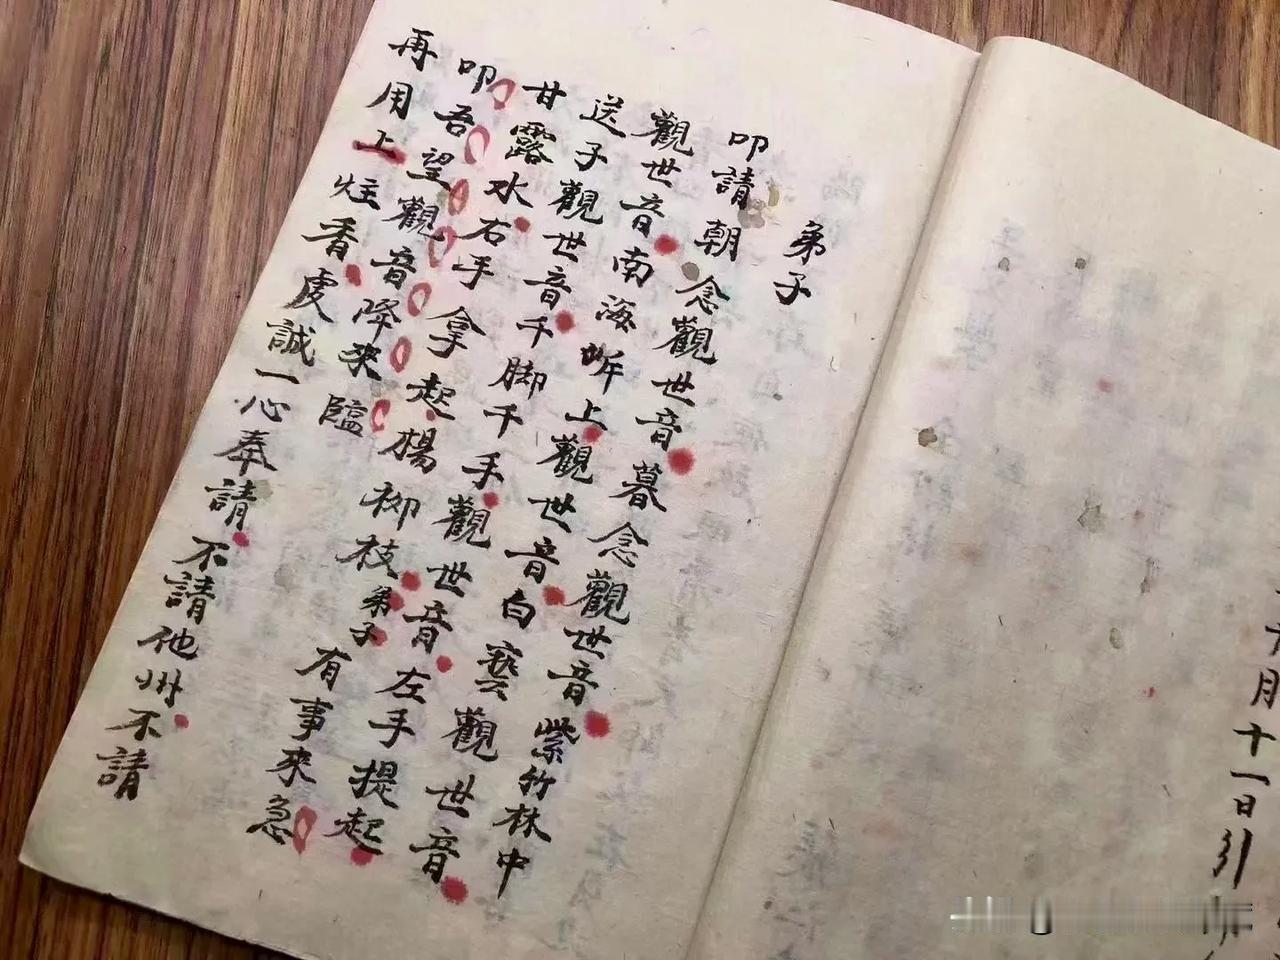 十月十一日引
弟子
叩請朝念觀世音暮念觀世音紫竹林中
觀世音南海岍上觀世音白藝觀世音
送子觀世音千脚千手觀世音左手提起
甘露水右手拿起楊柳枝弟子有事來急
叩吾望觀音降來臨
再用上炷香虔誠一心奉請不請他州不請